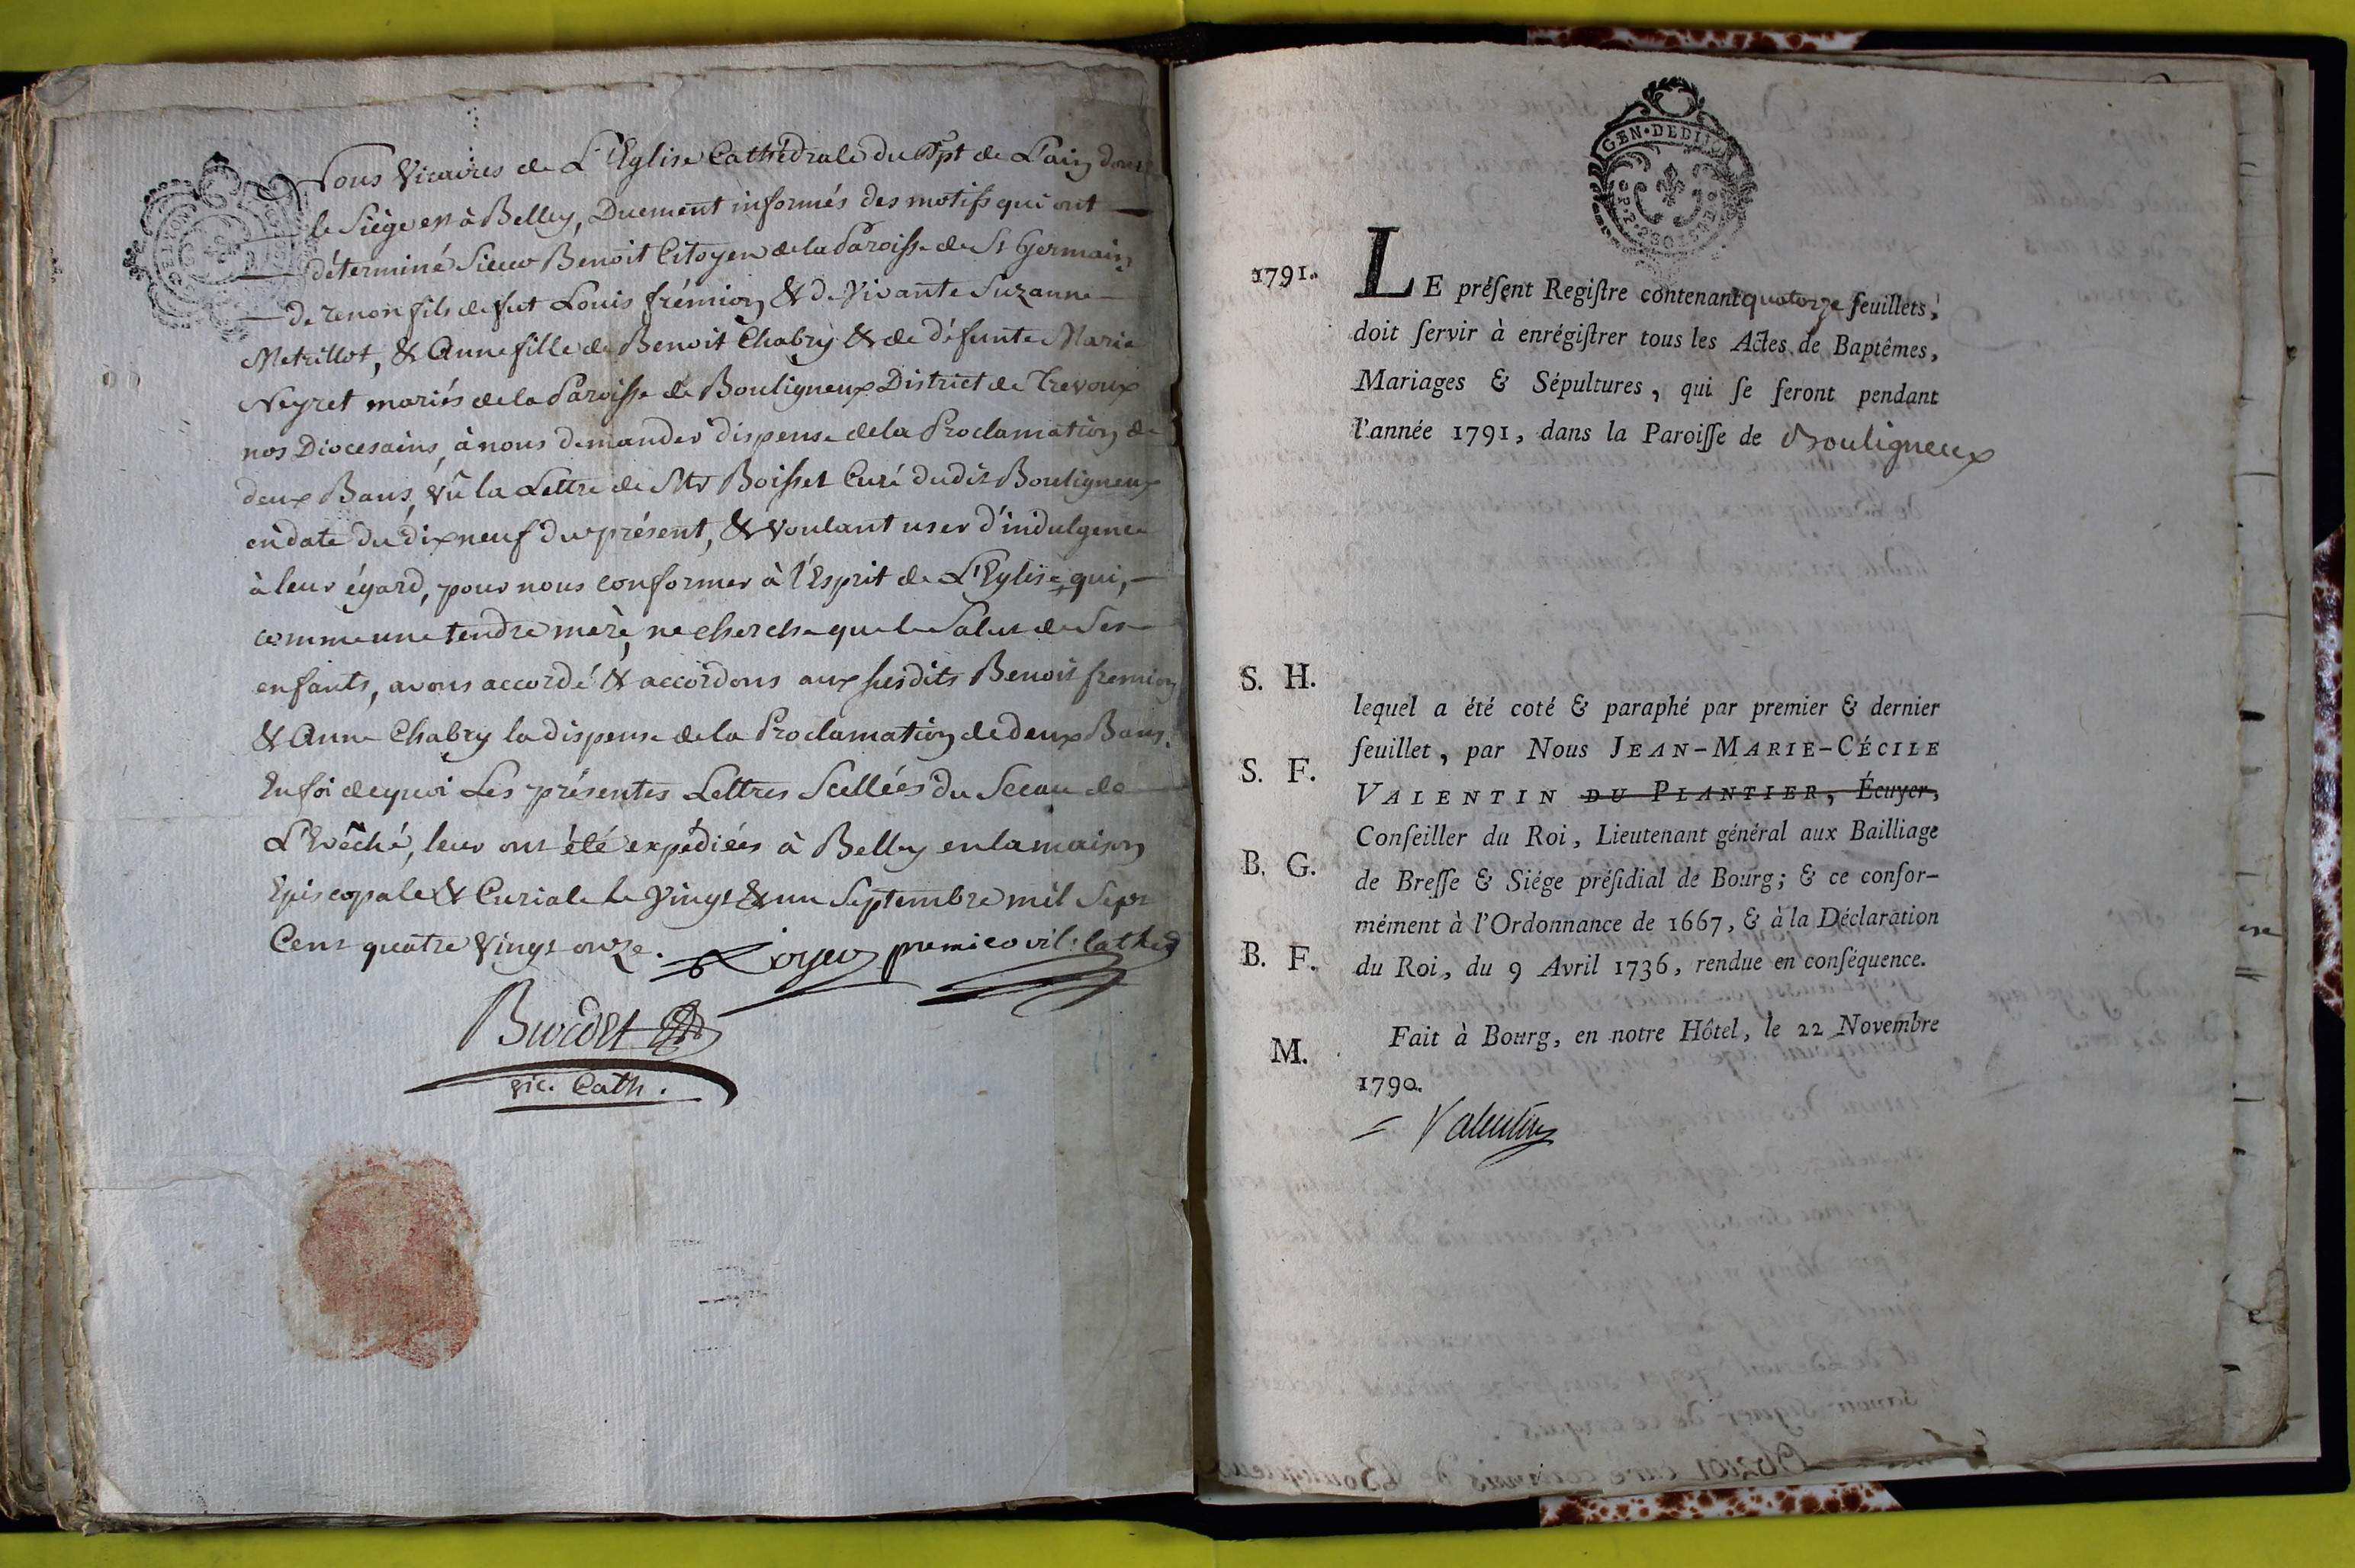 Nous Vicaires de L'Eglise Cathédrale du Dpt de L'ain dont
le Siège est à Belley, Duement informés des motifs qui ont
déterminé Sieur Benoit Citoyen de la Paroisse de St Germain
de renon fils de fut Louis frémion & de Vivante Suzanne
Metrillot, & Anne fille de Benoit Chabry & de défunte Marie
Neyret mariés de la Paroisse de Bouligneux District de Trevoux
nos Diocesains, à nous demander dispense de la Proclamation de
deux Bans, vû la Lettre de Mr Boisset Curé dudit Bouligneux
en date du dix neuf du présent, & voulant user d'indulgence
à leur égard, pour nous conformer à l'Esprit de L'Eglise, qui,
comme une tendre mère, ne cherche que le Salut de Ses
enfants, avons accordé & accordons aux susdits Benoit fremion
& Anne Chabry la dispense de la Proclamation de deux Bans.
En foi de quoi Les présentes Lettres Scellées du Sceau de
L'Evêché, leur ont été expédiées à Belley en la maison
Episcopale & Curiale le Vingt & un Septembre mil Sept
Cent quatre Vingt onze. premier vic: cathed
Burdet
vic. Cath.
GEN·DEDIJON
1791.
LE préſent Regiſtre contenant quatorze feuillets,
doit ſervir à enrégiſtrer tous les Actes de Baptêmes,
Mariages & Sépultures, qui ſe feront pendant
l'année 1791, dans la Paroiſſe de Bouligneux
S. H.
lequel a été coté & paraphé par premier & dernier
feuillet, par Nous JEAN-MARIE-CÉCILE
S. F.
VALENTIN DU PLANTIER, Écuyer,
Conſeiller du Roi, Lieutenant général aux Bailliage
B. G.
de Breſſe & Siége préſidial de Bourg; & ce confor-
mément à l'Ordonnance de 1667, & à la Déclaration
B. F.
du Roi, du 9 Avril 1736, rendue en conſéquence.
Fait à Bourg, en notre Hôtel, le 22 Novembre
M.
1790.
Valentin